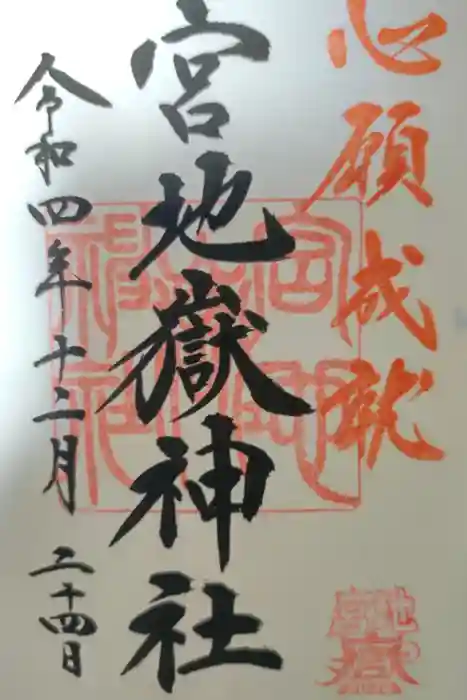 心願成就
宮地嶽神社
令和四年十二月二十四日